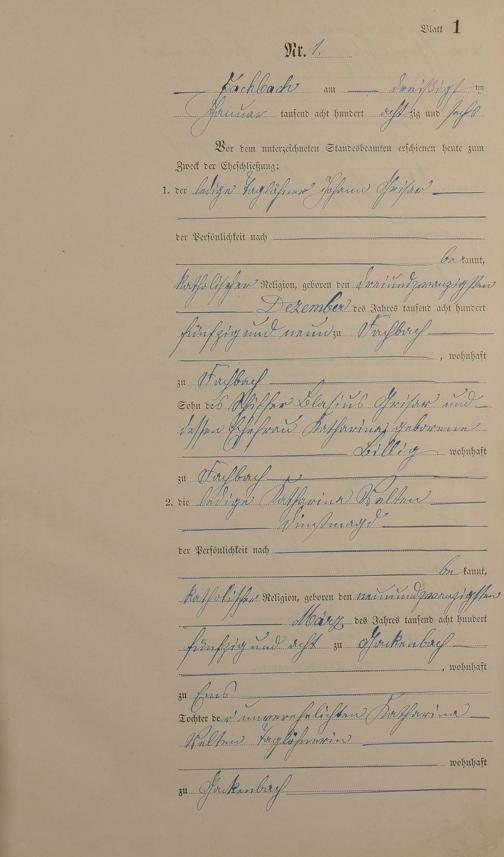 Blatt 1
Nr. 1.
Fachbach am dreißigsten
Januar tausend acht hundert achtzig und sechs
Vor dem unterzeichneten Standesbeamten erschienen heute zum
Zweck der Eheschließung:
1. der ledige Taglöhner Johann Grisar
der Persönlichkeit nach
bekannt,
katholischer Religion, geboren den dreiundzwanzigsten
Dezember des Jahres tausend acht hundert
fünfzig und neun zu Fachbach
, wohnhaft
zu Fachbach
Sohn des Schiffer Blasius Grisar und
dessen Ehefrau Katharina geborene
Billig wohnhaft
zu Fachbach
2. die ledige Katharina Welten
Dienstmagd
der Persönlichkeit nach
bekannt,
katholischer Religion, geboren den neunundzwanzigsten
März des Jahres tausend acht hundert
fünfzig und acht zu Gackenbach
, wohnhaft
zu Ems
Tochter der unverehelichten Katharina
Welten Taglöhnerin
wohnhaft
zu Gackenbach